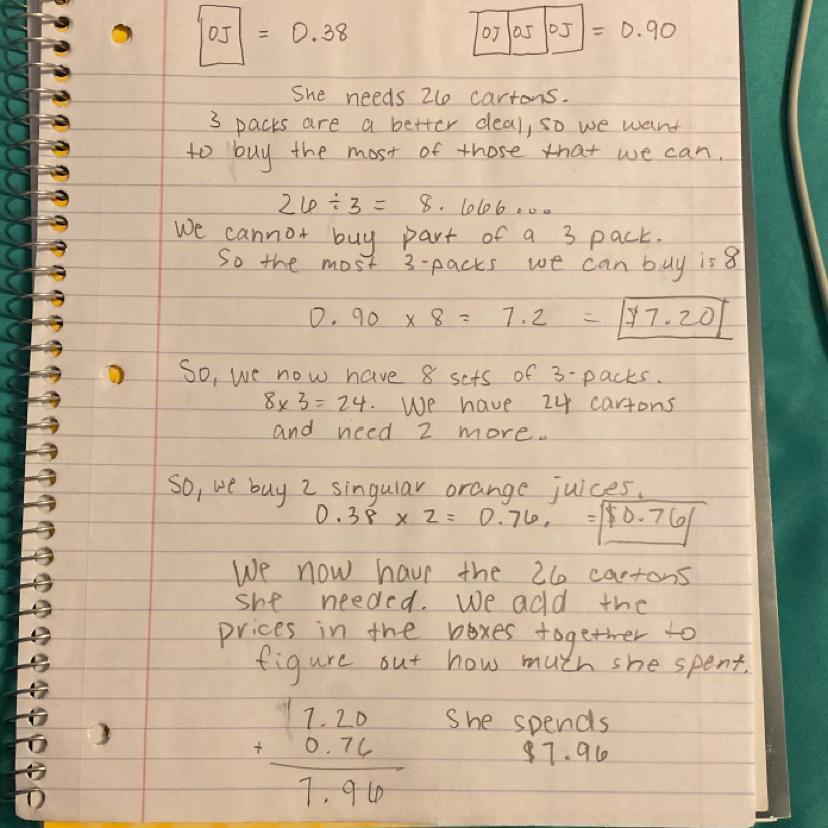 OJ = 0.38 OJ OJ OJ = 0.90
She needs 26 cartons.
3 packs are a better deal, so we want
to buy the most of those that we can.
26 ÷ 3 = 8.666...
We cannot buy part of a 3 pack.
So the most 3-packs we can buy is 8
0.90 x 8 = 7.2 = $7.20
So, we now have 8 sets of 3-packs.
8x3=24. We have 24 cartons
and need 2 more.
So, we buy 2 singular orange juices.
0.38 x 2 = 0.76. = $0.76
We now have the 26 cartons
she needed. We add the
prices in the boxes together to
figure out how much she spent.
7.20 She spends
+ 0.76 $7.96
7.96